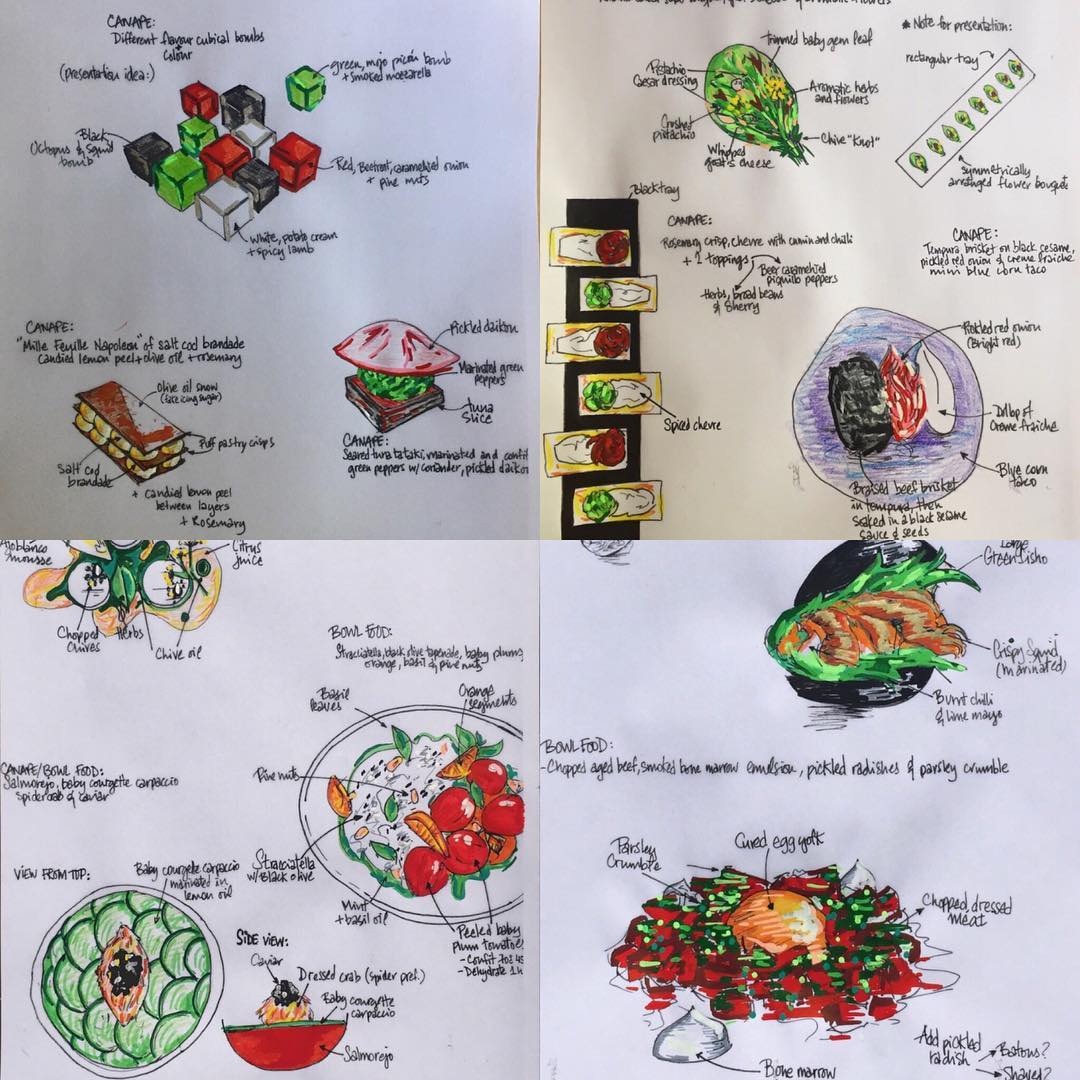 CANAPE:
Different flavour cubical bombs
+
colour
(presentation idea:)
green, mojo picón bomb
+ smoked mozzarella
Black
Octopus & squid
bomb
Red, Beetroot, caramelised onion
+ pine nuts
White, potato cream
+ spicy lamb
CANAPE:
"Mille Feuille Napoleon" of salt cod brandade
candied lemon peel + olive oil + rosemary
Olive oil snow
(fake icing sugar)
Puff pastry crisps
Salt cod
brandade
+ candied lemon peel
between layers
+ Rosemary
Pickled daikon
Marinated green
peppers
tuna
slice
CANAPE:
Seared tuna tataki, marinated and confit
green peppers w/ coriander, pickled daikon
flowers
* Note for presentation:
trimmed baby gem leaf
Pistachio
Caesar dressing
Aromatic herbs
and flowers
Crushed
pistachio
Chive "Knot"
Whipped
goat's cheese
rectangular tray
symmetrically
arranged flower bouquet
Black tray
CANAPE:
Rosemary crisp, chevre with cumin and chilli
+ 2 toppings
Beer caramelised
piquillo peppers
Herbs, broad beans
& Sherry
Spiced chevre
CANAPE:
Tempura brisket on black sesame,
pickled red onion & creme fraiche
mini blue corn taco
Pickled red onion
(Bright red)
Dollop of
Creme fraiche
Blue corn
taco
Braised beef brisket
in tempura, then
soaked in a black sesame
sauce & seeds
Ajoblanco
mousse
Citrus
juice
Chopped
chives
Herbs
Chive oil
BOWL FOOD:
Stracciatella, black olive tapenade, baby plums,
orange, basil & pine nuts
Basil
leaves
Orange
segments
Pine nuts
Stracciatella
w/ Black olive
Mint
+ basil oil
Peeled baby
plum tomatoes
- Confit
- Dehydrate 1h
CANAPE/BOWL FOOD:
Salmorejo, baby courgette carpaccio
spider crab & caviar
VIEW FROM TOP:
Baby courgette carpaccio
marinated in
lemon oil
SIDE VIEW:
Caviar
Dressed crab (spider pref.)
Baby courgette
carpaccio
Salmorejo
Large
Green shiso
Crispy Squid
(marinated)
Burnt chilli
& lime mayo
BOWL FOOD:
- Chopped aged beef, smoked bone marrow emulsion, pickled radishes & parsley crumble
Parsley
Crumble
Cured egg yolk
Chopped, dressed
meat
Bone marrow
Add pickled
radish
Batons?
Shaved?